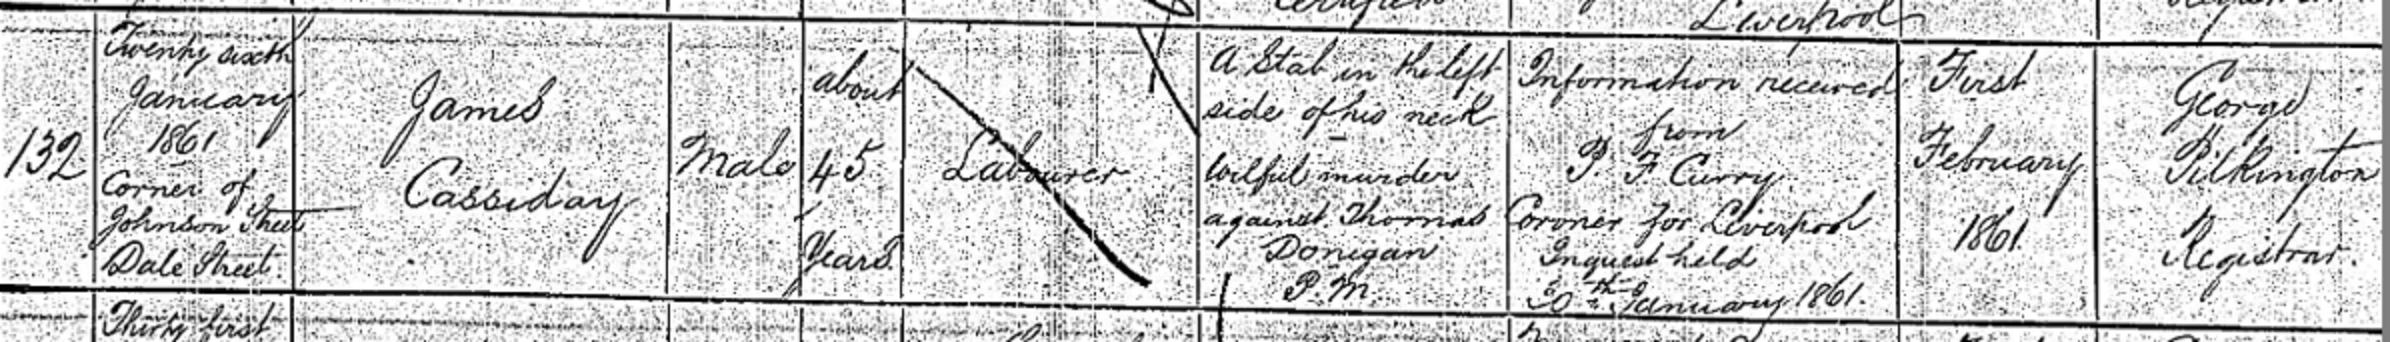 Liverpool
132
Twenty sixth
January
1861
Corner of
Johnson Street
Dale Street
James
Cassiday
Male
about
45
Years
Labourer
A Stab in the left
side of his neck
Wilful murder
against Thomas
Donegan
P.M.
Information received
from
P. F Curry
Coroner for Liverpool
Inquest held
30th January 1861.
First
February
1861
George
Pilkington
Registrar.
Thirty first